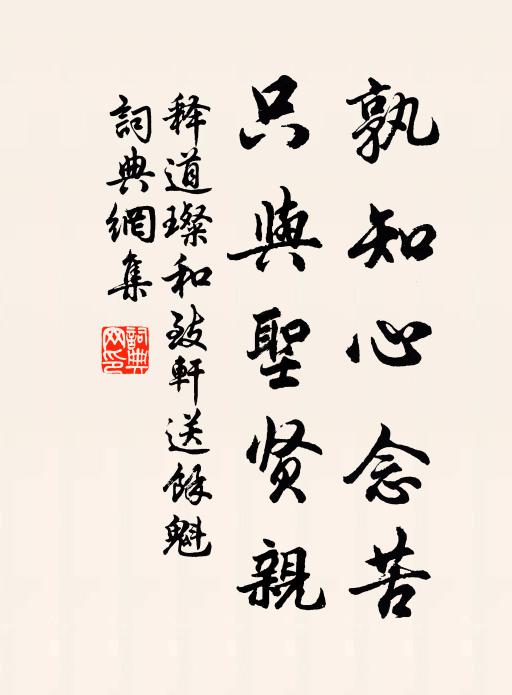 孰知心念苦
只與聖贤親
释道璨和致軒送餘魁
詞典網集
詞典網印